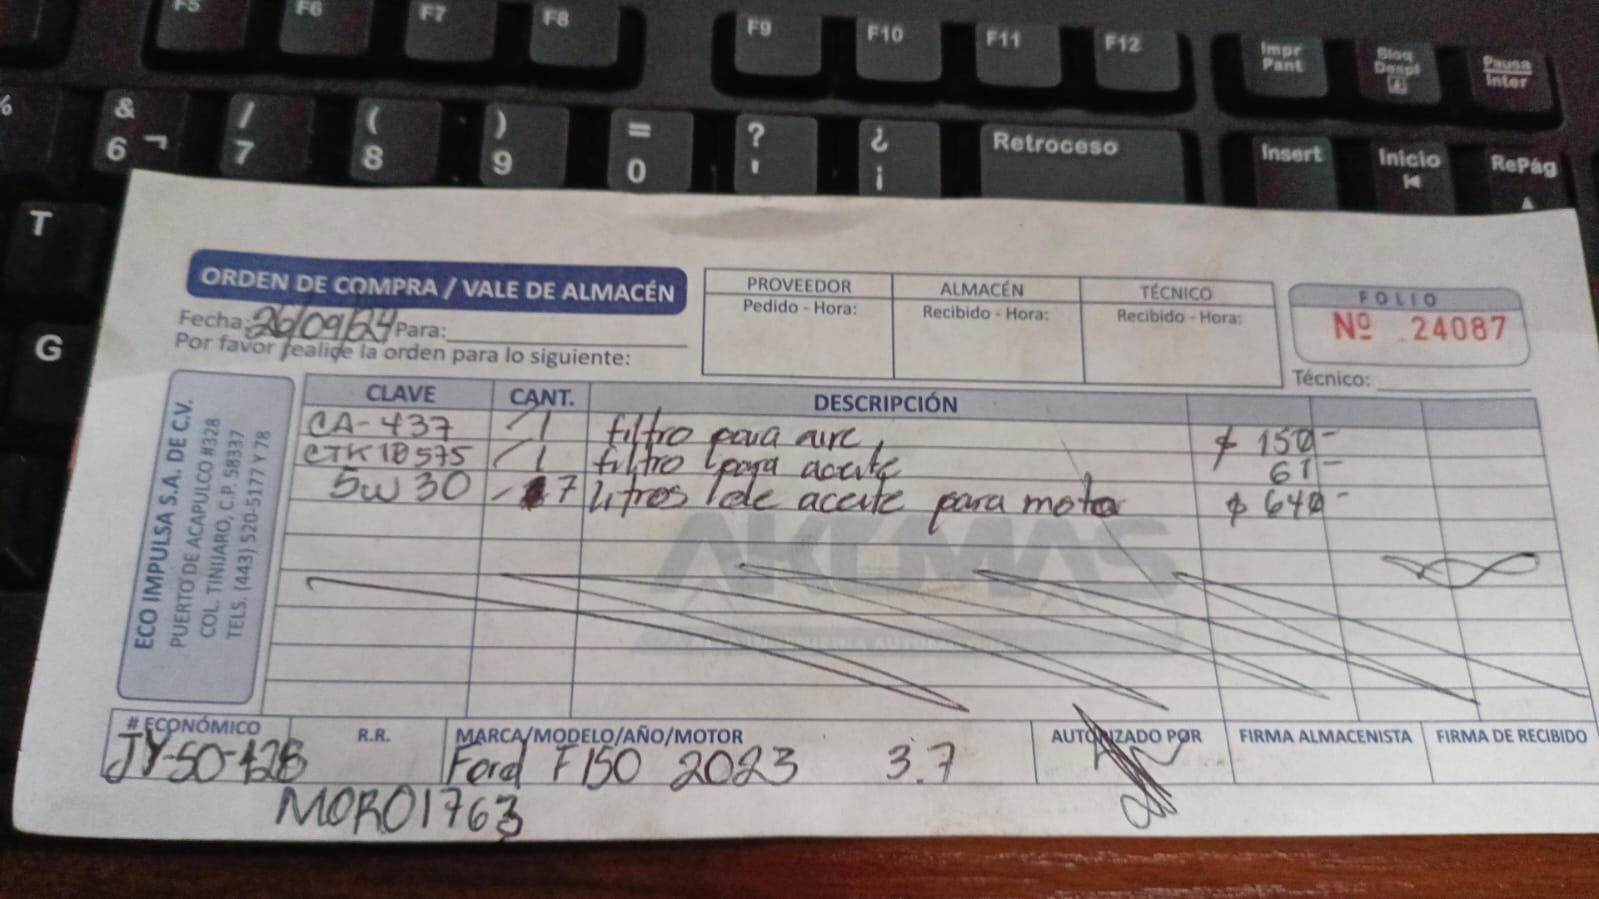 F5 F6 F7 F8 F9 F10 F11 F12 Impr Pant Bloq Despl Pausa Inter
% & 6 ¬ / 7 ( 8 ) 9 = 0 ? ' ¿ ¡ Retroceso Insert Inicio RePág
T
G
ORDEN DE COMPRA / VALE DE ALMACÉN
Fecha: 26/09/24 Para:
Por favor realice la orden para lo siguiente:
PROVEEDOR ALMACÉN TÉCNICO
Pedido - Hora: Recibido - Hora: Recibido - Hora:
FOLIO
Nº 24087
Técnico:
ECO IMPULSA S.A. DE C.V.
PUERTO DE ACAPULCO #328
COL. TINIJARO, C.P. 58337
TELS. (443) 520-5177 Y 78
CLAVE CANT. DESCRIPCIÓN
CA-437 1 filtro para aire $ 150-
CTK10575 1 filtro para aceite 61-
5W30 7 litros de aceite para motor $ 640-
AKUMAS
# ECONÓMICO R.R. MARCA/MODELO/AÑO/MOTOR AUTORIZADO POR FIRMA ALMACENISTA FIRMA DE RECIBIDO
JY-50-428 Ford F150 2023 3.7
MORO1763